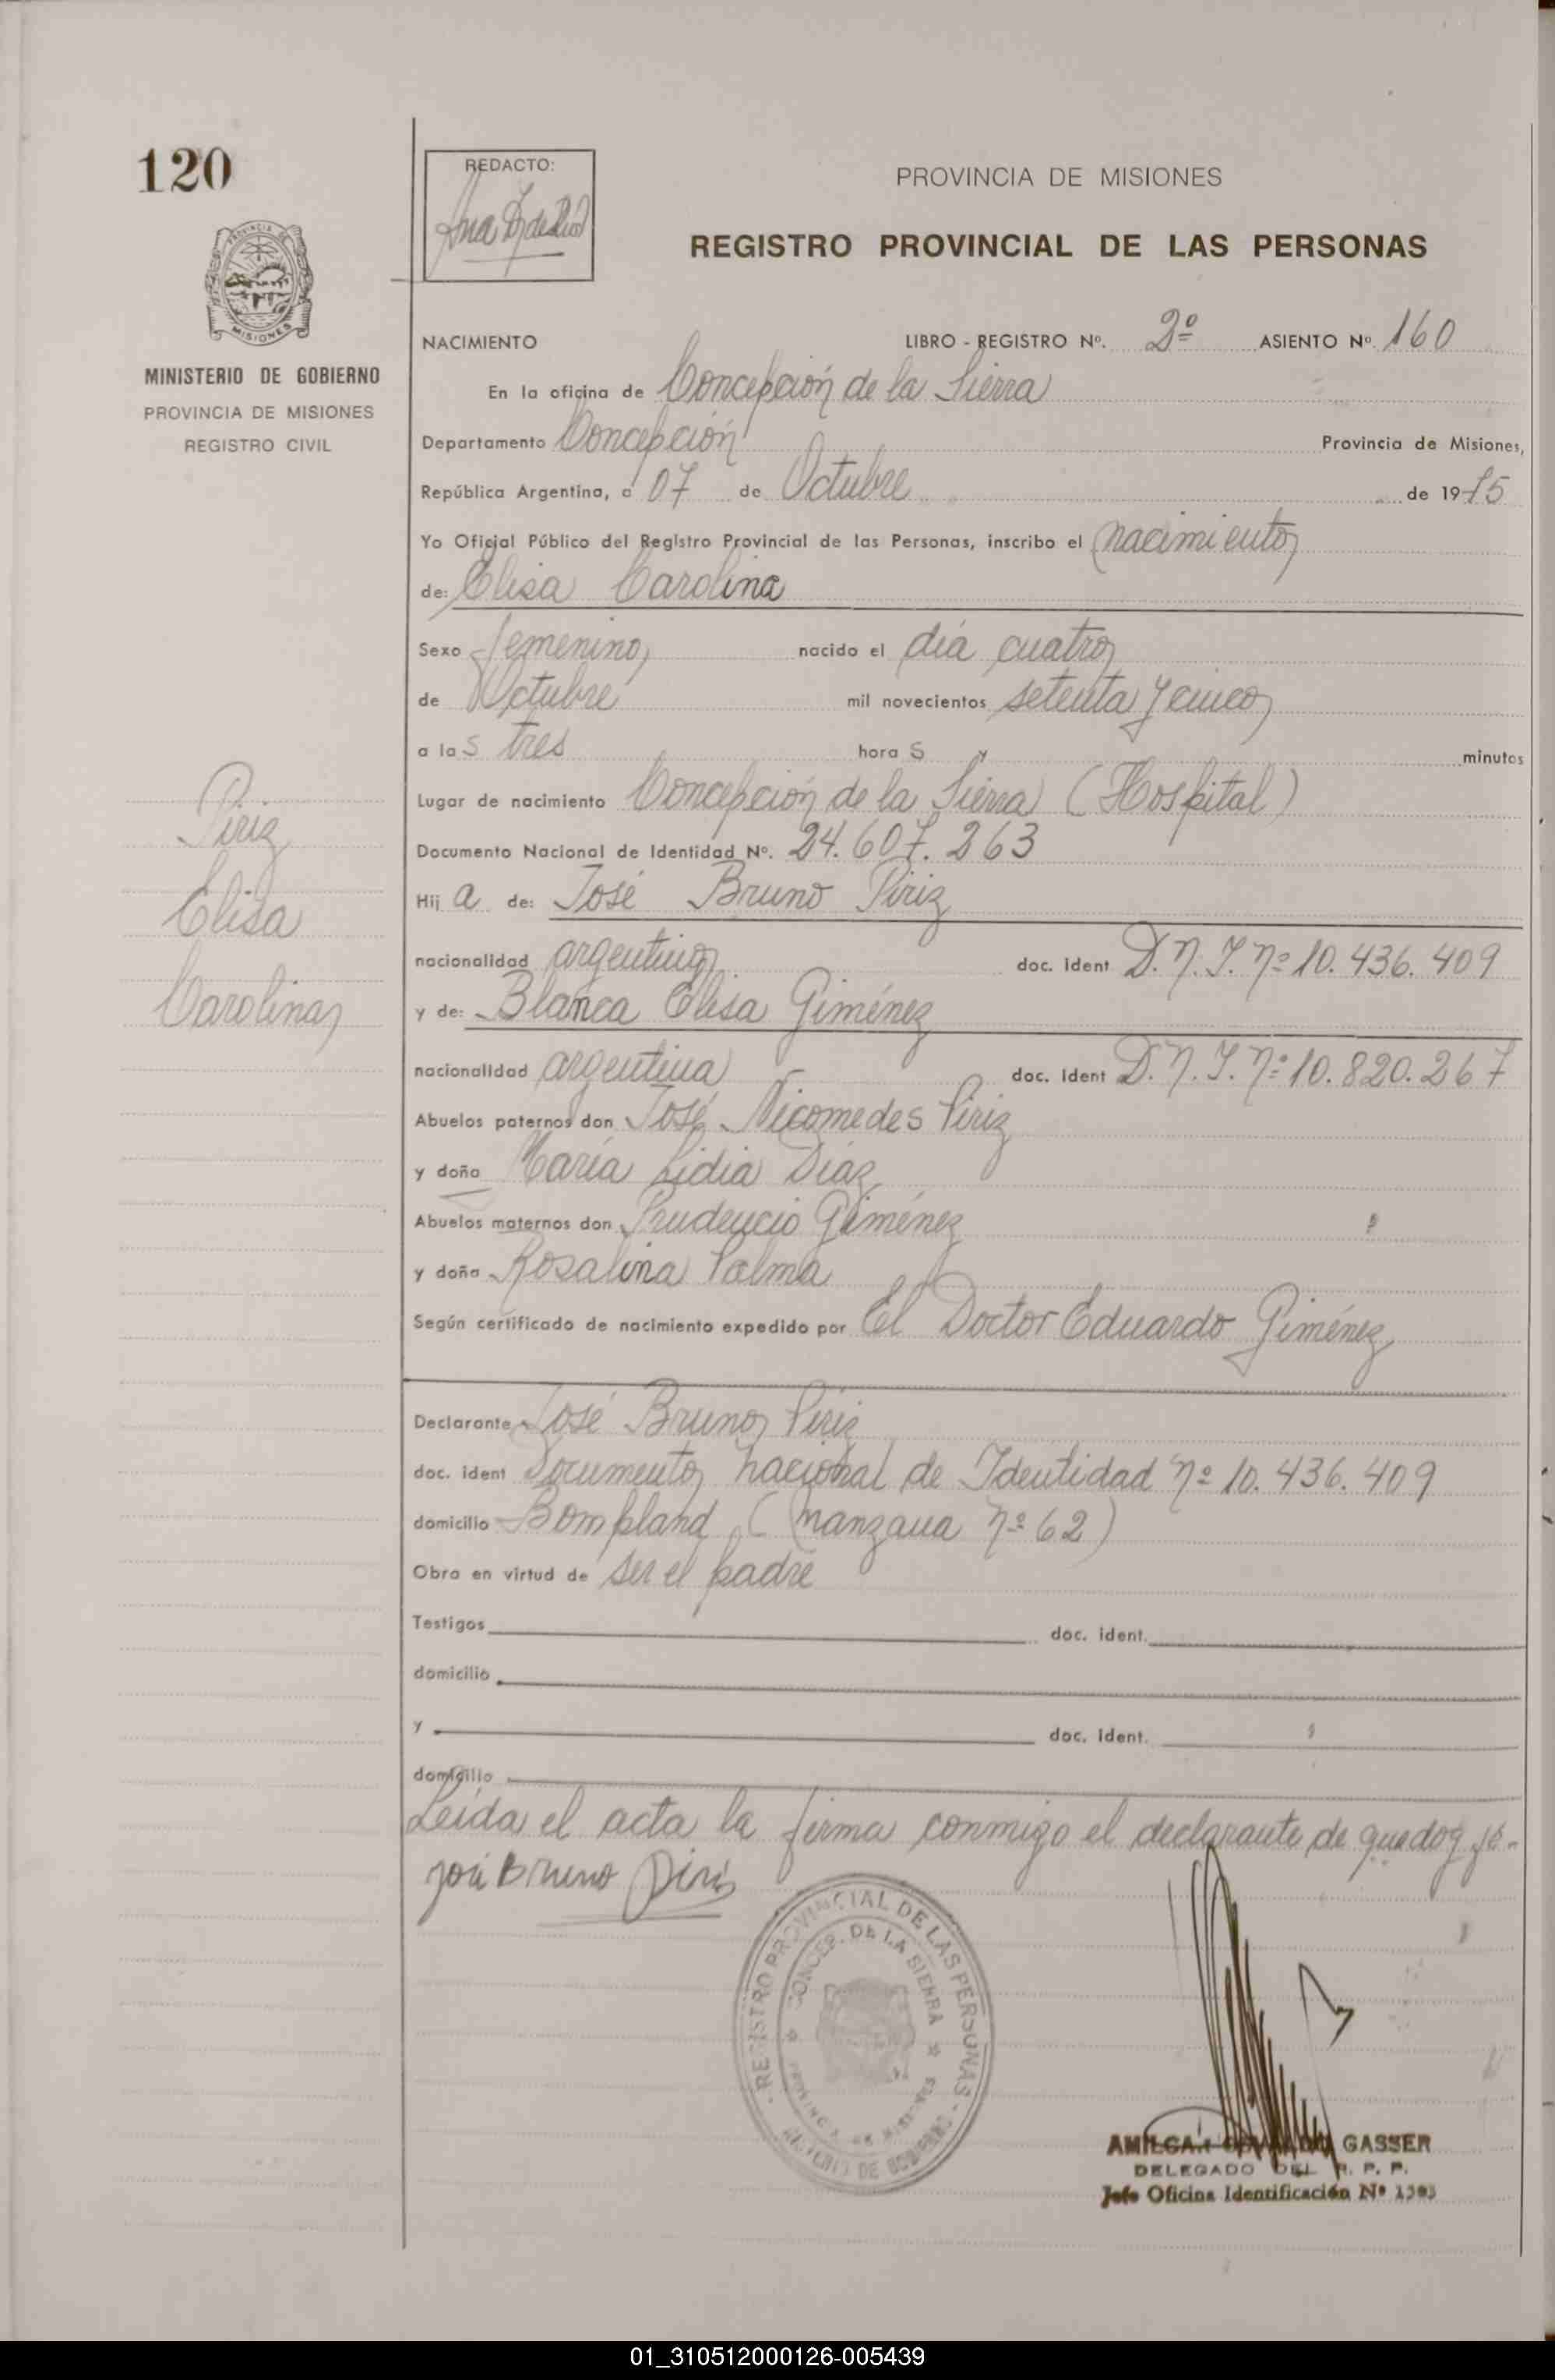 120
REDACTO:
PROVINCIA DE MISIONES
REGISTRO PROVINCIAL DE LAS PERSONAS
MISIONES
MINISTERIO DE GOBIERNO
PROVINCIA DE MISIONES
REGISTRO CIVIL
NACIMIENTO LIBRO - REGISTRO Nº. 2º ASIENTO Nº 160
En la oficina de Concepción de la Sierra
Departamento Concepción Provincia de Misiones,
República Argentina, a 07 de Octubre de 1975
Yo Oficial Público del Registro Provincial de las Personas, inscribo el nacimiento
de: Elisa Carolina
Sexo femenino, nacido el día cuatro
de Octubre mil novecientos setenta y cinco
a las tres horas y minutos
Lugar de nacimiento Concepción de la Sierra (Hospital)
Documento Nacional de Identidad Nº. 24.607.263
Hija de: José Bruno Piriz
nacionalidad argentino doc. ident D.N.I. nº 10.436.409
y de: Blanca Elisa Giménez
nacionalidad argentina doc. ident D.N.I. nº 10.820.267
Abuelos paternos don José Nicomedes Piriz
y doña María Lidia Diaz
Abuelos maternos don Prudencio Giménez
y doña Rosalina Palma
Según certificado de nacimiento expedido por El Doctor Eduardo Giménez
Declarante José Bruno Piriz
doc. ident Documento nacional de Identidad nº 10.436.409
domicilio Bompland (manzana nº 62)
Obra en virtud de ser el padre
Testigos doc. ident.
domicilio
y doc. ident.
domicilio
Leída el acta la firma conmigo el declarante de que doy fé-
José Bruno Piris
Piriz
Elisa
Carolina
REGISTRO PROVINCIAL DE LAS PERSONAS
CONCEP. DE LA SIERRA
PROVINCIA DE MISIONES
DE GOBIERNO
GASSER
DELEGADO DEL R. P. P.
Jefe Oficina Identificación Nº
01_310512000126-005439